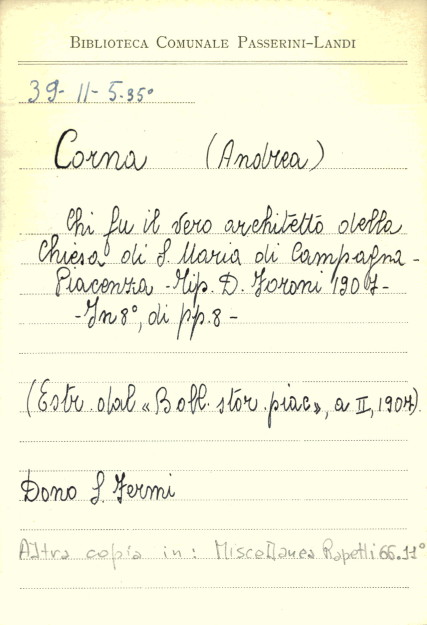 BIBLIOTECA COMUNALE PASSERINI-LANDI
39-11-5.35°
Corna (Andrea)
Chi fu il vero architetto della
Chiesa di S. Maria di Campagna -
Piacenza - Tip. D. Foroni 1907 -
- In 8°, di pp. 8 -
(Estr. dal «Boll. stor. piac», a II, 1907).
Dono S. Fermi
Altra copia in: Miscellanea Rapetti 66.11°